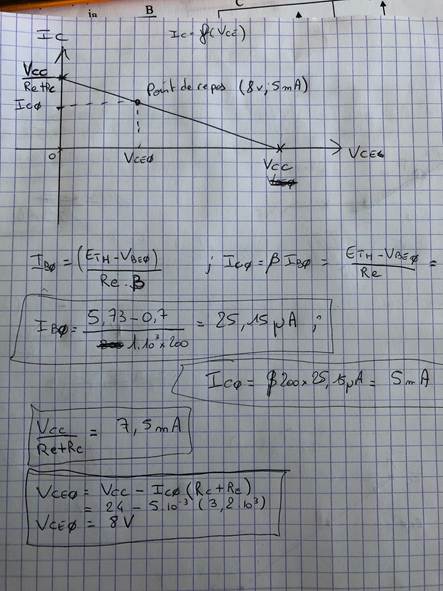 in B C
Ic
Ic = f(VCE)
Vcc
Re+Rc
Icø
Point de repos (8v; 5mA)
o
VCEø
Vcc
VCE
IBø = (ETH-VBEø) / Re.β ; Icø = β IBø = ETH-VBEø / Re =
IBø = 5,73-0,7 / 1.10³×200 = 25,15 µA ;
Icø = β 200×25,15µA = 5mA
Vcc / Re+Rc = 7,5mA
VCEø = Vcc - Icø (Rc+Re)
= 24 - 5.10⁻³ (3,2.10³)
VCEø = 8V